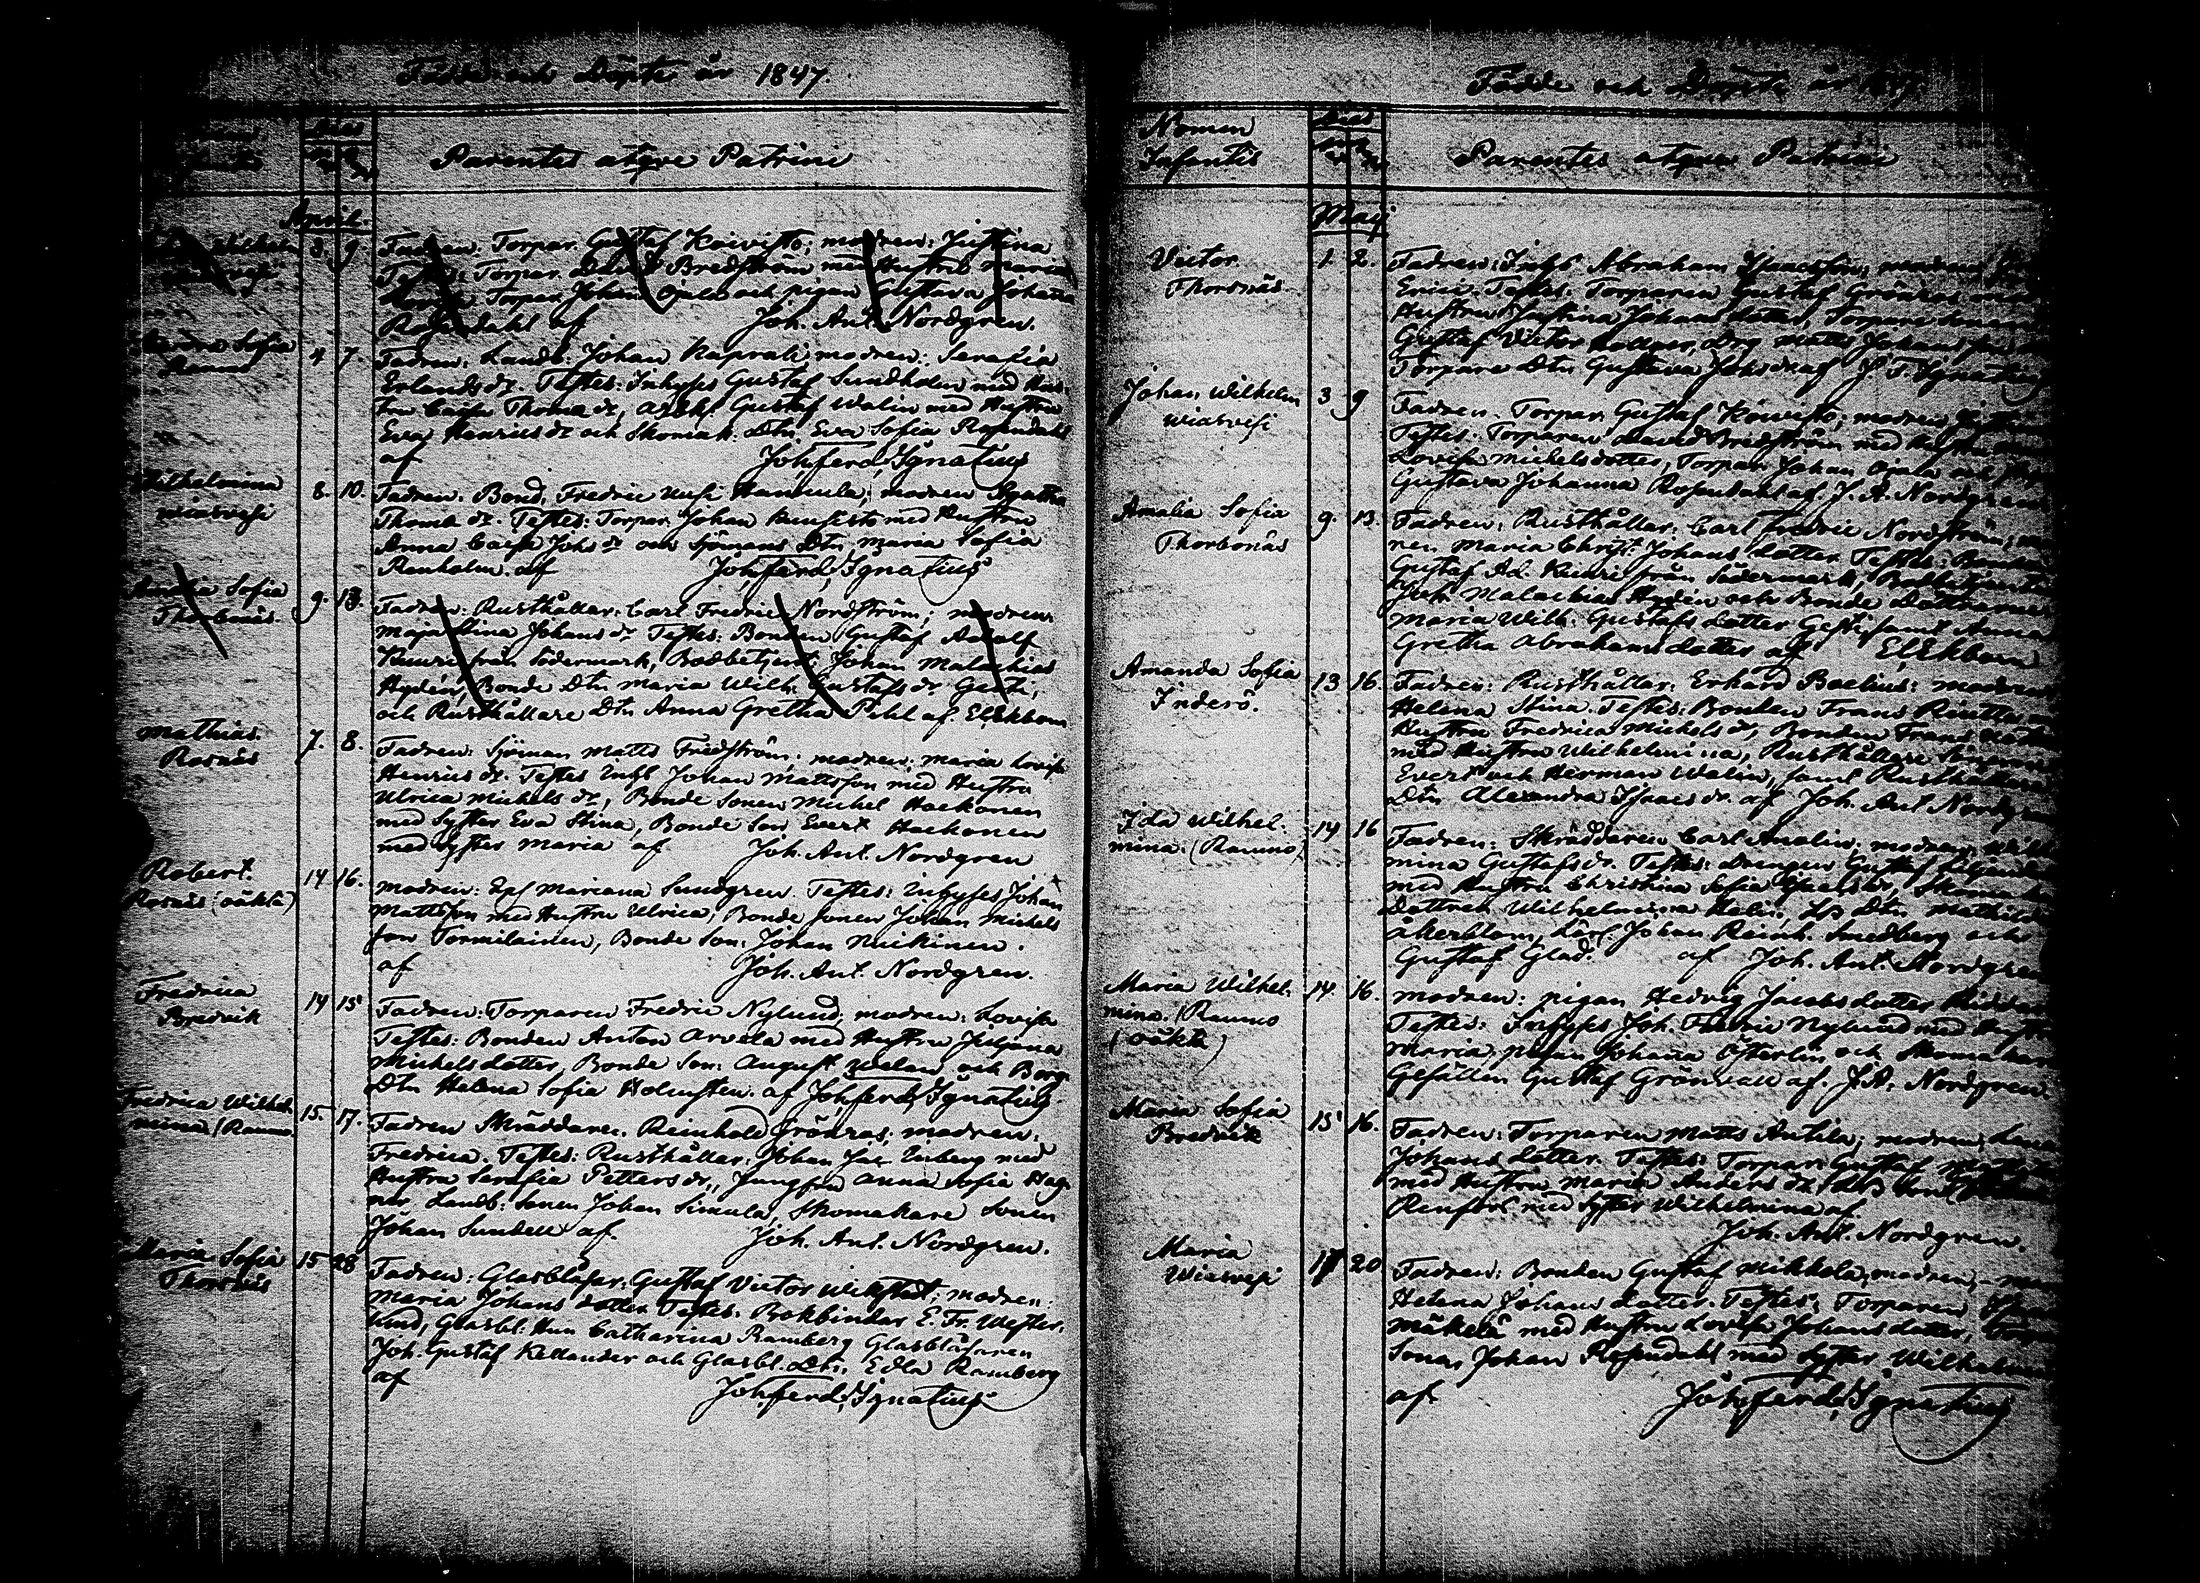 Födde och Döpte år 1847.
Parentes atque Patrini
April.
Wilhelm 3 9 Fadren: Torpar. Gustaf Koivisto; modren: Justina
Testes: Torpar. David Bredström med Hustru Maria
Torpar. Johan Ojala och pigan Gustava Johanna
Rosendahl af Joh. Ant. Nordgren.
Sofia
Raumo 4 7. Fadren: Landb: Johan Kaprali modren: Serafia
Erlands dr. Testes: Inhyses Gustaf Sundholm med Hus-
tru Caisa Thoms dr, Gustaf Walin med Hustru
Eva Henrics dr och Skomak: Dtr. Eva Sofia Rosendahl
af Joh. Ferd. Ignatius
Wilhelmina
Wiasvesi 8. 10. Fadren: Bond. Fredric Uusi Hannula; modren Agatha
Thoms dr. Testes: Torpar. Johan med Hustru
Anna Caisa Johs dr och Sjömans Dtr Maria Sofia
Renholm. af Joh. Ferd. Ignatius
Amalia Sofia
Thorbonäs. 9. 13. Fadren: Rusthållar: Carl Fredric Nordström; modren
Maja Stina Johans dr Testes: Bonden Gustaf Adolf
Knuuri från Södermark, Bodbetjent: Johan Malachias
Hydén, Bonde Dtr. Maria Wilh: Gustafs dr Gesti,
och Rusthållare Dtr Anna Gretha Pihl af. El. Ekbom
Mathias.
Rosnäs 7. 8. Fadren: Sjöman Matts Fredström; modren; Maria Lovisa
Henrics dr. Testes Inhs Johan Mattsson med Hustru
Ulrica Michels dr, Bonde Sonen Michel Hackonen
med Syster Eva Stina, Bonde Son Evert Hackonen
med Syster Maria af Joh. Ant. Nordgren
Robert.
Rosnäs (oäkta) 14 16. Modren: Mariana Sundgren. Testes: Inhyses Johan
Mattsson med Hustru Ulrica, Bonde Sonen Johan Michels
son Tormilainen, Bonde Son: Johan
af Joh. Ant. Nordgren.
Fredrica
Bredvik 14 15 Fadren: Torparen Fredric Nylund; modren: Lovisa
Testes: Bonden Anton Arvela med Hustru Juliana
Michelsdotter, Bonde Son: August och Borg.
Dtr Helena Sofia Holmsten. af Joh. Ferd. Ignatius
Fredrica Wilhel
mina (Raumo 15. 17. Fadren Skräddaren. Reinhold Grönroos; modren:
Fredrica. Testes: Rusthållar. Johan Jac. Enberg med
Hustru Serafia Petters dr., Jungfru Anna Sofia Hag-
ner Landb: Sonen Johan Simula, Skomakare Sonen
Johan Sundell af. Joh. Ant. Nordgren.
Maria Sofia
Thorsnäs 15 28 Fadren: Glasblåsar: Gustaf Victor Wikstedt; modren:
Maria Johans dotter Testes: Bokbindar E. Fr. Wester-
lund, Glasbl: Hun Catharina Ramberg Glasblåsaren
Joh. Gustaf Kellander och Glasbl. Dtr., Edla Ramberg
af Joh. Ferd. Ignatius
Födde och Döpte år 1847.
Nomen
Infantis
Dies
Parentes atque Patrini
Maij
Victor.
Thorsnäs. 1. 2. Fadren: Inhys Abraham Isaacsson; modren
Erici. Testes: Torparen Gustaf Grönroos med
Hustru Justina Johansdotter, Torpare Sonen
Gustaf Victor Drg Matts Johans son
Torpare Dtr Gustava Johs dr af J. F. Ignatius
Johan Wilhelm
Wiasvesi 3 9 Fadren. Torpar. Gustaf Koivisto; modren Justina
Testes. Torparen David Bredström med hustru
Lovisa Michelsdotter, Torpar. Johan Ojala och pigan
Gustava Johanna Rosendahl af J. A. Nordgren
Amalia Sofia
Thorbonäs 9. 13. Fadren: Rusthållar: Carl Fredric Nordström; mod
ren Maria Christ: Johans dotter Testes: Bonden
Gustaf Ad. Knuuri från Södermark, Bodbetjenten
Joh. Malachias Hydén och Bonde Döttrarne
Maria Wilh: Gustafs dotter Gesti samt Anna
Gretha Abrahams dotter af El. Ekbom
Amanda Sofia
Inderö. 13 16. Fadren: Rusthållar: Erhard Boelius: modren
Helena Stina. Testes: Bonden Frans
Hustru Fredrica Michels dr, Bonden Frans
med Hustru Wilhelmina, Rusthållare Sönerne
Evert och Herman Walin, samt Rusthållare
Dtr Alexandra Isaacs dr. af Joh. Ant. Nordgren
Ida Wilhel-
mina. (Raumo) 14 16 Fadren: Skräddaren Carl Amalin. modren: Wilhel
mina Gustafs dr. Testes: Drengen Gustaf
med Hustru Christina Sofia Skomakare
Dottren Wilhelmina Helin, Dtr. Mathilda
Åkerblom, Karl Johan Reinh. Smedberg och
Gustaf Glad. af Joh. Ant. Nordgren
Maria Wilhel-
mina. (Raumo
(oäkta) 14. 16. Modren: pigan Hedvig Jacobs dotter
Testes: Inhyses Joh. Fredric Nylund med Hustru
Maria, pigan Johana Österlin och Skomakare
Gesällen Gustaf Grönvall af. J. A. Nordgren.
Maria Sofia
Bredvik 15 16. Fadren: Torparen Matts Antila; modren; Lena
Johans dotter. Testes: Torpar. Gustaf
med Hustru Maria Anders dr
Renfors med Syster Wilhelmina af.
Joh. Ant. Nordgren.
Maria
Wiasvesi 17 20 Fadren: Bonden Gustaf Mikkola, modren;
Helena Johans dotter. Testes: Torparen
Mäkelä med Hustru Lovisa Johans dotter,
Sonen Johan Rosendahl med Syster Wilhelmina
af. Joh. Ferd. Ignatius